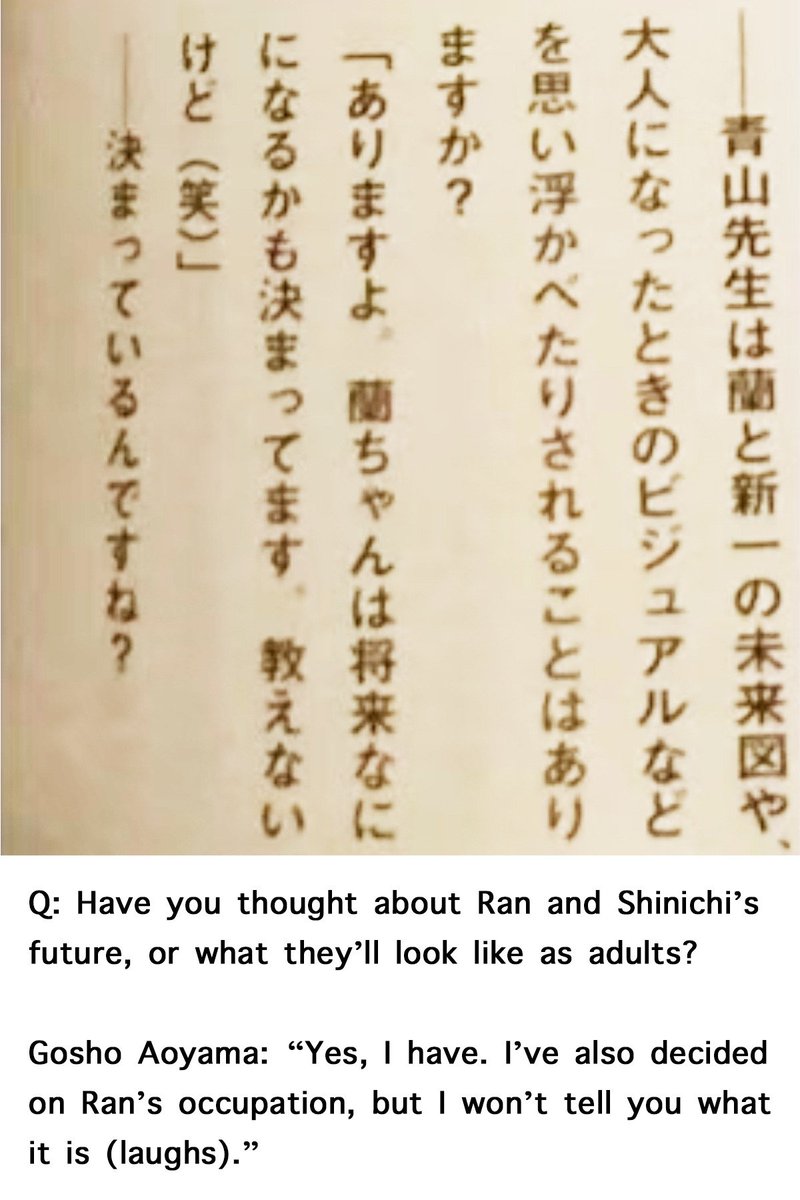 ――青山先生は蘭と新一の未来図や、
大人になったときのビジュアルなど
を思い浮かべたりされることはあり
ますか？
「ありますよ。蘭ちゃんは将来なに
になるかも決まってます。教えない
けど（笑）」
――決まっているんですね？
Q: Have you thought about Ran and Shinichi’s
future, or what they’ll look like as adults?
Gosho Aoyama: “Yes, I have. I’ve also decided
on Ran’s occupation, but I won’t tell you what
it is (laughs).”